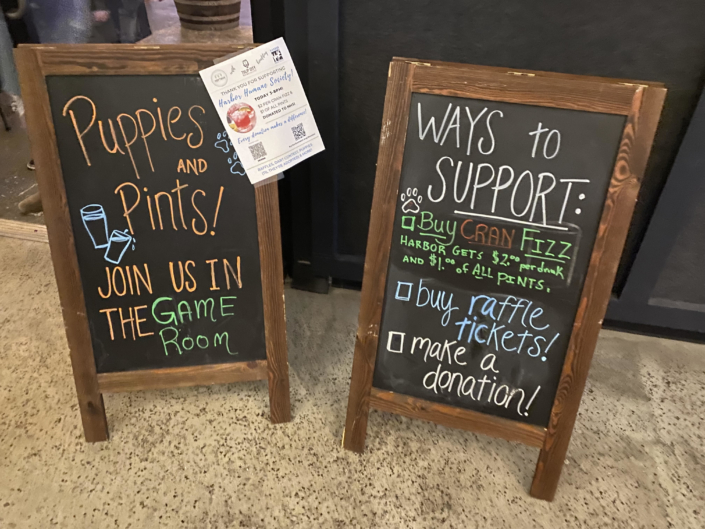 Puppies
AND
Pints!
JOIN US IN
THE GAME
ROOM
THANK YOU FOR SUPPORTING
Harbor Humane Society!
TODAY
DONATED TO HHS!
Every donation makes a difference!
WAYS to
SUPPORT:
Buy CRAN FIZZ
HARBOR GETS $2.00 per drink
AND $1.00 of ALL PINTS.
buy raffle
tickets!
make a
donation!